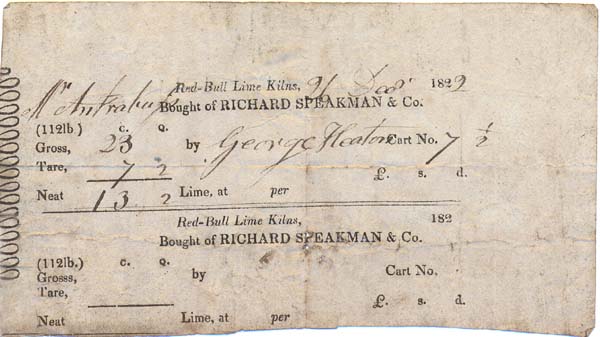 Red-Bull Lime Kilns, 21 1822
Mr
Bought of RICHARD SPEAKMAN & Co.
(112lb) C. Q.
Gross, 23 by George Heaton Cart No. 7 1/2
Tare, 7 2 £. s. d.
Neat 13 2 Lime, at per
Red-Bull Lime Kilns, 182
Bought of RICHARD SPEAKMAN & Co.
(112lb.) C. Q.
Grosss, by Cart No.
Tare, £. s. d.
Neat Lime, at per